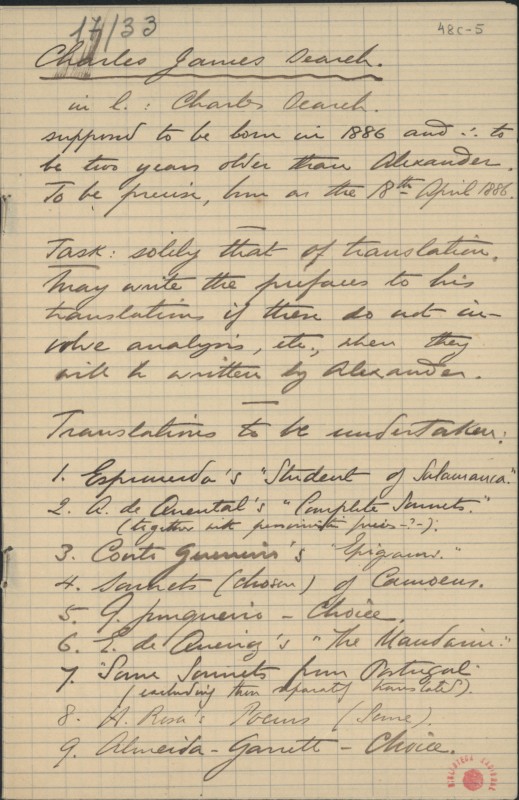 17/33
48C-5
Charles James Search.
in l.: Charles Search.
supposed to be born in 1886 and ∴ to
be two years older than Alexander.
To be precise, born on the 18th April 1886.
Task: solely that of translation.
May write the prefaces to his
translations if these do not in-
volve analysis, etc., when they
will be written by Alexander.
Translations to be undertaken:
1. Espronceda's "Student of Salamanca."
2. A. de Quental's "Complete Sonnets."
(together with - ? -).
3. Conto 's "Epigrams."
4. Sonnets (chosen) of Camoens.
5. G. Junqueiro - Choice.
6. E. de Queiroz's "The Mandarin."
7. "Some Sonnets from Portugal.
(excluding them separately translated).
8. H. Rosa's Poems (Some).
9. Almeida-Garrett - Choice.
BIBLIOTECA NACIONAL